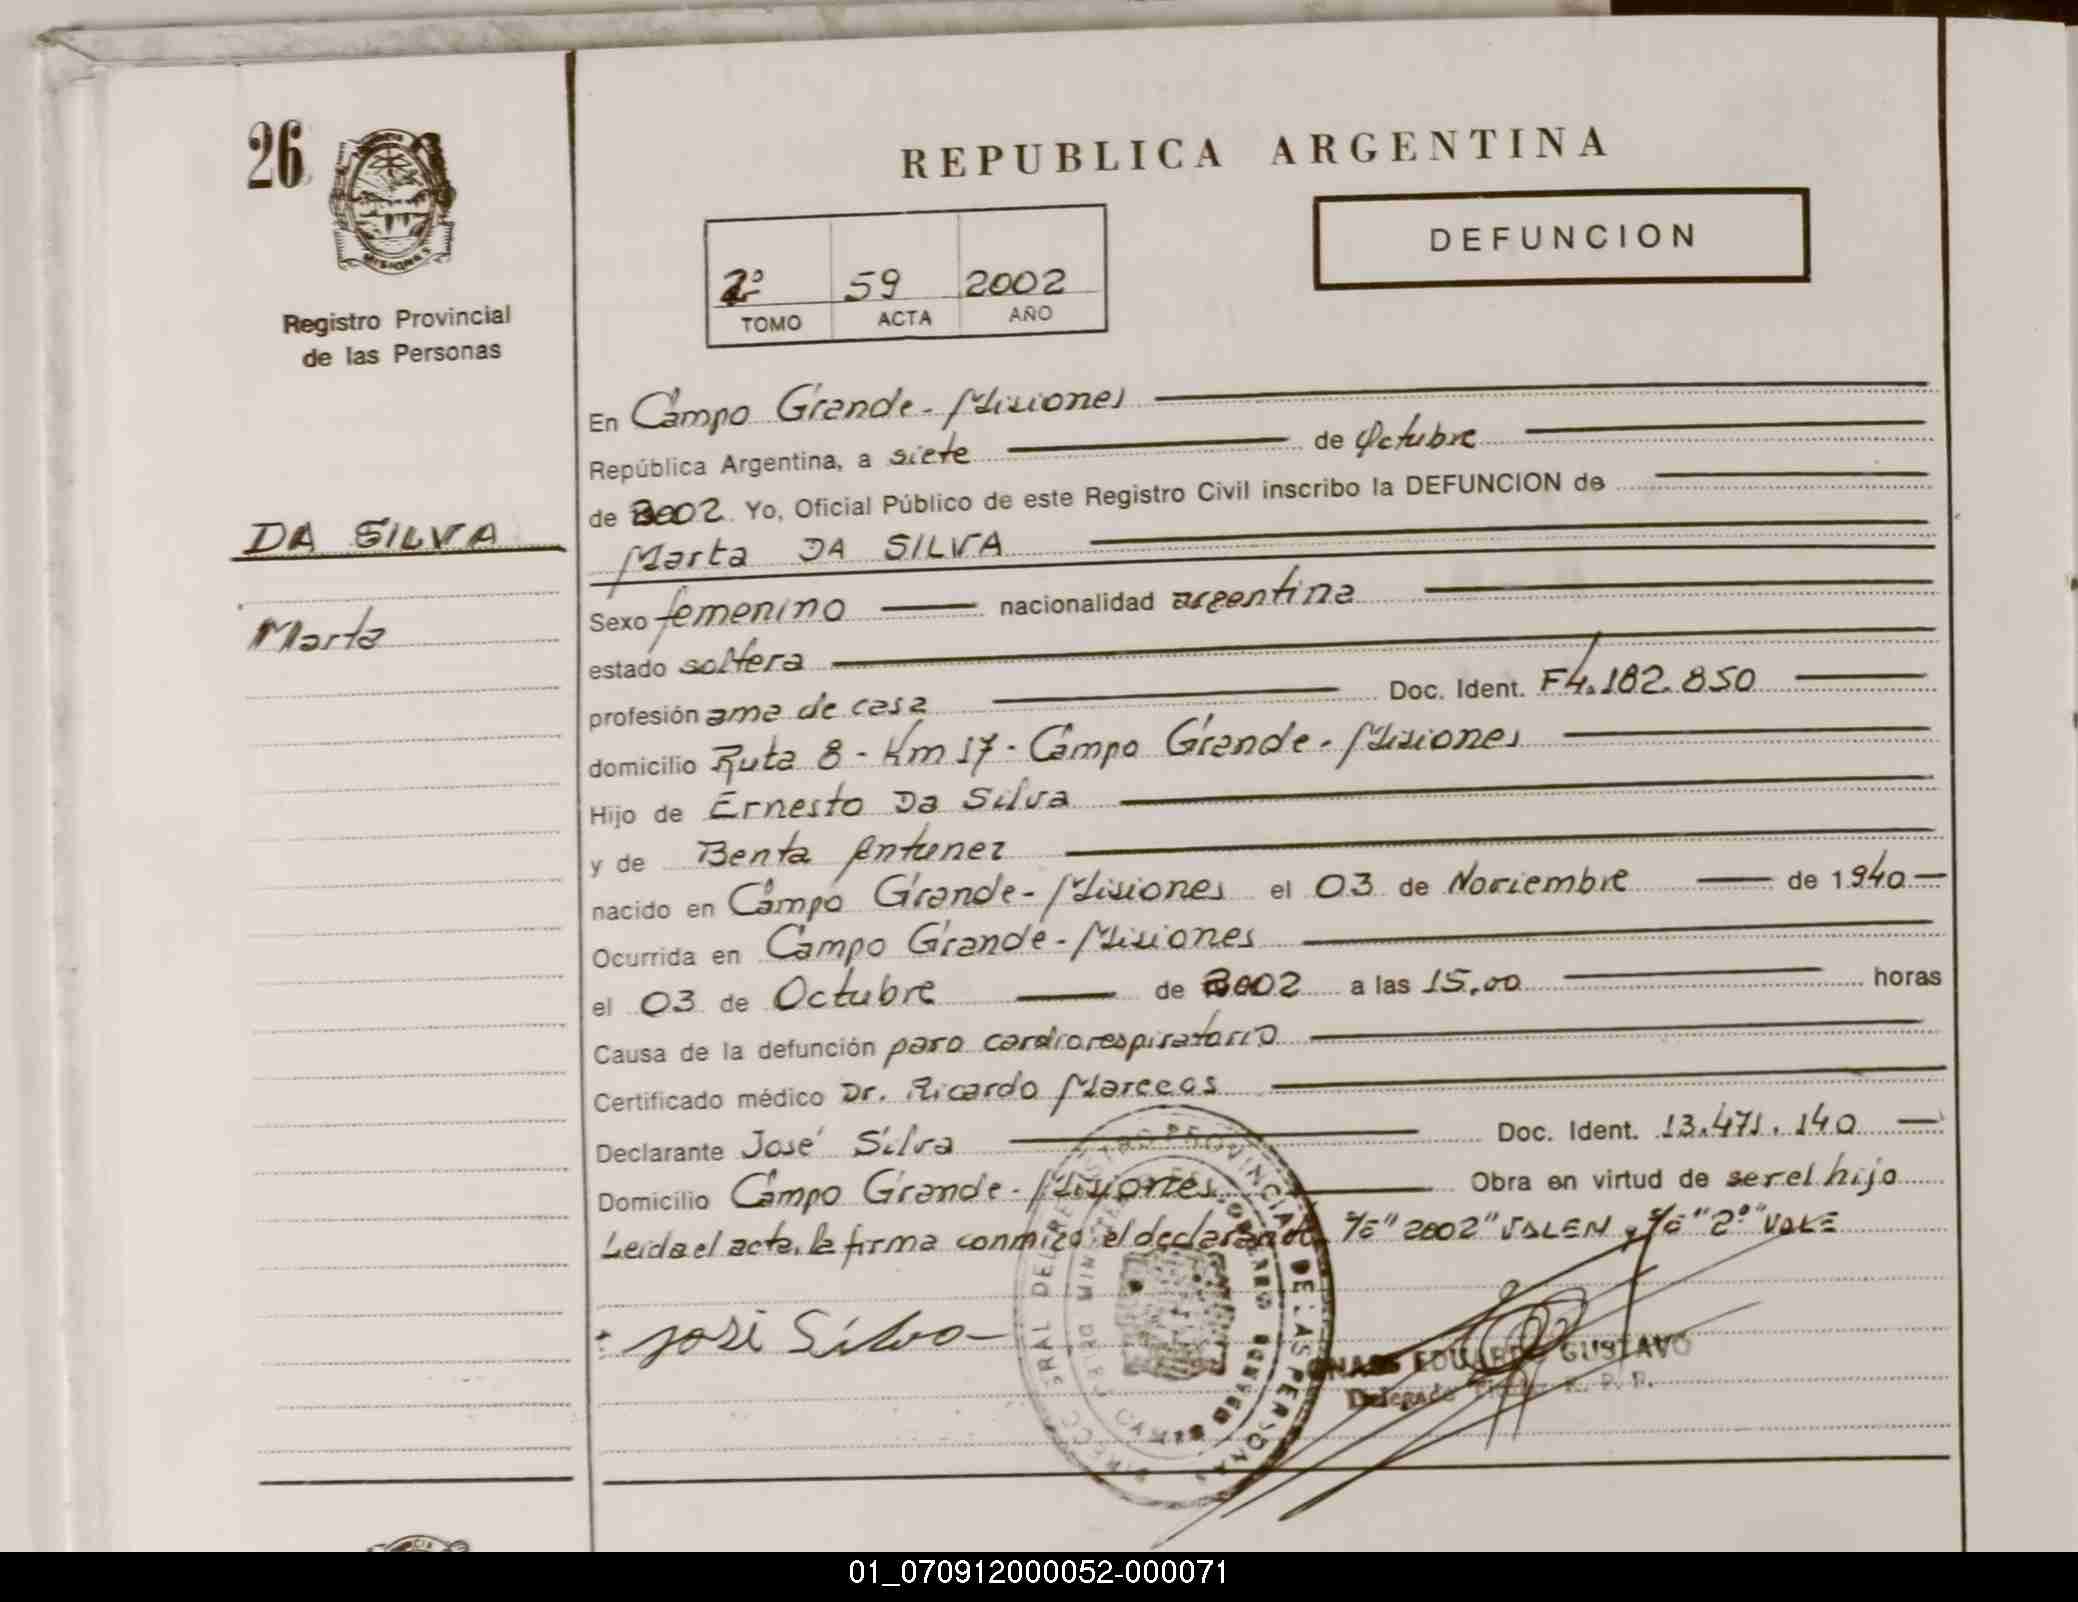 26
MISIONES
Registro Provincial
de las Personas
DA SILVA
Marta
REPUBLICA ARGENTINA
DEFUNCION
2º 59 2002
TOMO ACTA AÑO
En Campo Grande - Misiones
República Argentina, a siete de Octubre
de 2002 Yo, Oficial Público de este Registro Civil inscribo la DEFUNCION de
Marta DA SILVA
Sexo femenino nacionalidad argentina
estado soltera
profesión ama de casa Doc. Ident. F4.182.850
domicilio Ruta 8 - Km 17 - Campo Grande - Misiones
Hijo de Ernesto Da Silva
y de Benta Antunez
nacido en Campo Grande - Misiones el 03 de Noviembre de 1940
Ocurrida en Campo Grande - Misiones
el 03 de Octubre de 2002 a las 15,00 horas
Causa de la defunción paro cardiorespiratorio
Certificado médico Dr. Ricardo
Declarante José Silva Doc. Ident. 13.471.140
Domicilio Campo Grande - Misiones Obra en virtud de ser el hijo
Leida el acta, la firma conmigo el declarante. S/E "2002" VALEN y S/E "2º" VALE
José Silva
EDUARDO GUSTAVO
Delegado Titular R. P. P.
REGISTRO PROVINCIAL DE LAS PERSONAS
01_070912000052-000071